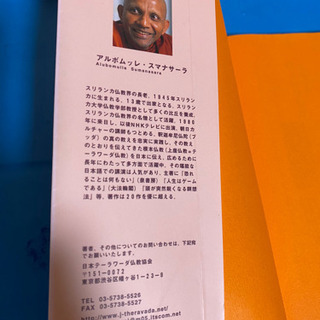 アルボムッレ・スマナサーラ
Alubomulle Sumanasara
スリランカ仏教界の長老。1945年スリラン
カに生まれる。13歳で出家となる。スリラン
カ大学仏教学部教授として多くの比丘を養成。
スリランカ仏教界の名僧として活躍。1980
年に来日し、以後NHKテレビに出演、朝日カ
ルチャーの講師もつとめる。釈迦牟尼仏陀（ブ
ッダ）の真の教えを忠実に実践し、その教え
のとおりを伝えてきた根本仏教（上座仏教=テ
ーラワーダ仏教）を日本に伝え、広めるために
長年にわたって多方面で活躍中。その堪能な
日本語での講演は人気があり、主著に『恐れ
ることは何もない』（泉書房）『人生はゲーム
である』（大法輪閣）『頭が突然鋭くなる瞑想
法』等、著作は20作を優に超える。
著者、その他についてのお問い合わせは、下記宛
でお願いします。
日本テーラワーダ仏教協会
〒151-0072
東京都渋谷区幡ヶ谷1-23-9
TEL 03-5738-5526
FAX 03-5738-5527
http://www.j-theravada.net/
@m05.itscom.net